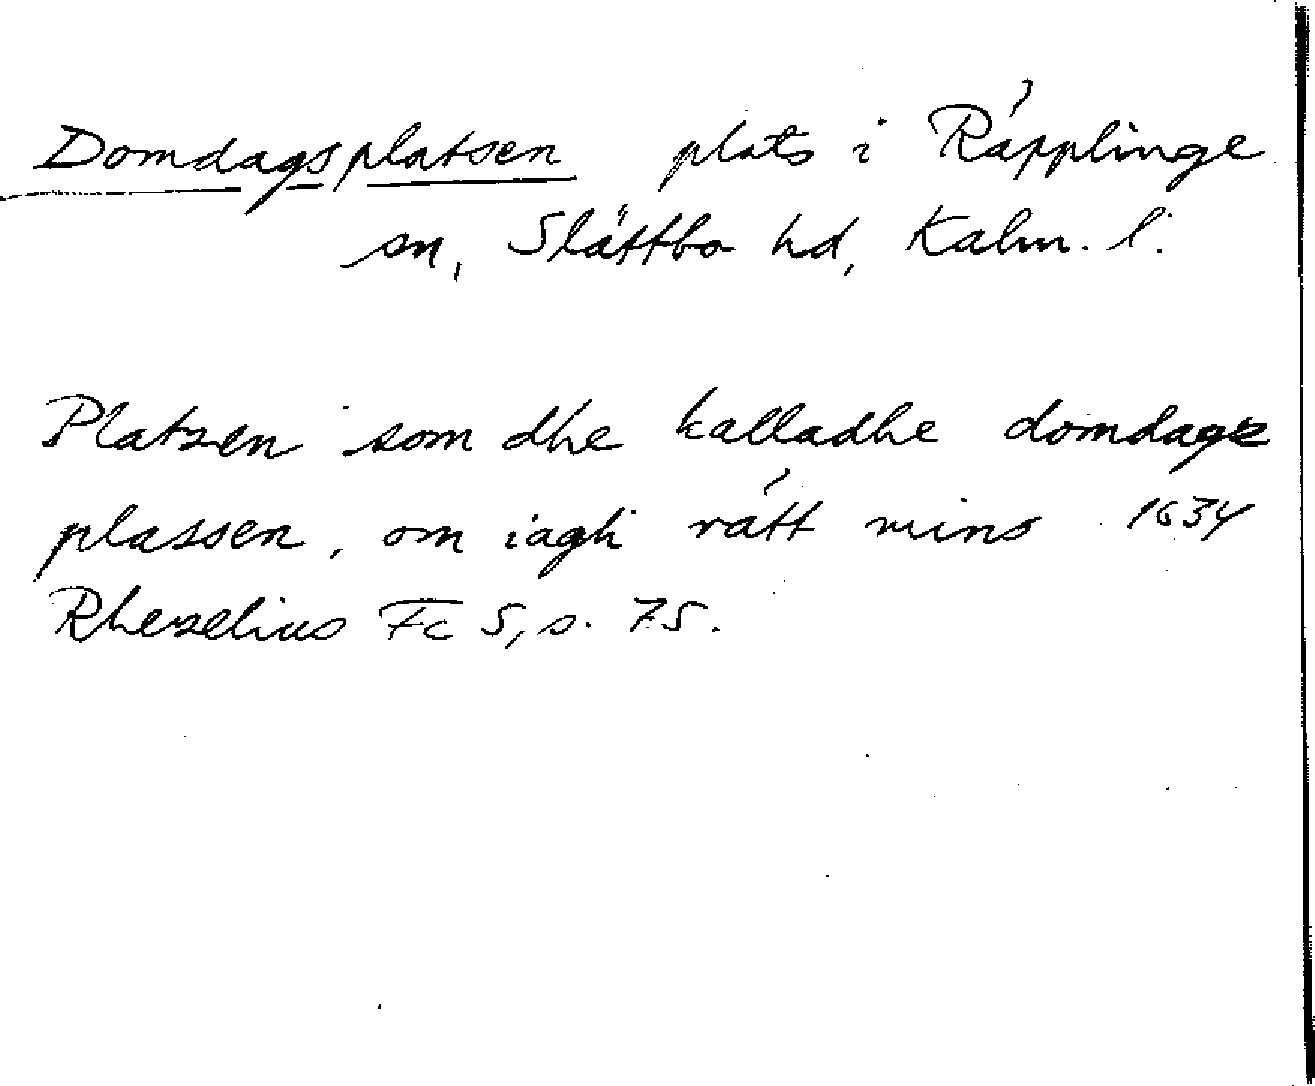 Domdagsplatsen plats i Räpplinge
sn, Slättbo hd, Kalm. l.
Platzen som dhe kalladhe domdagz
plassen, om iagh rätt mins 1634
Rhezelius Fc 5, s. 75.